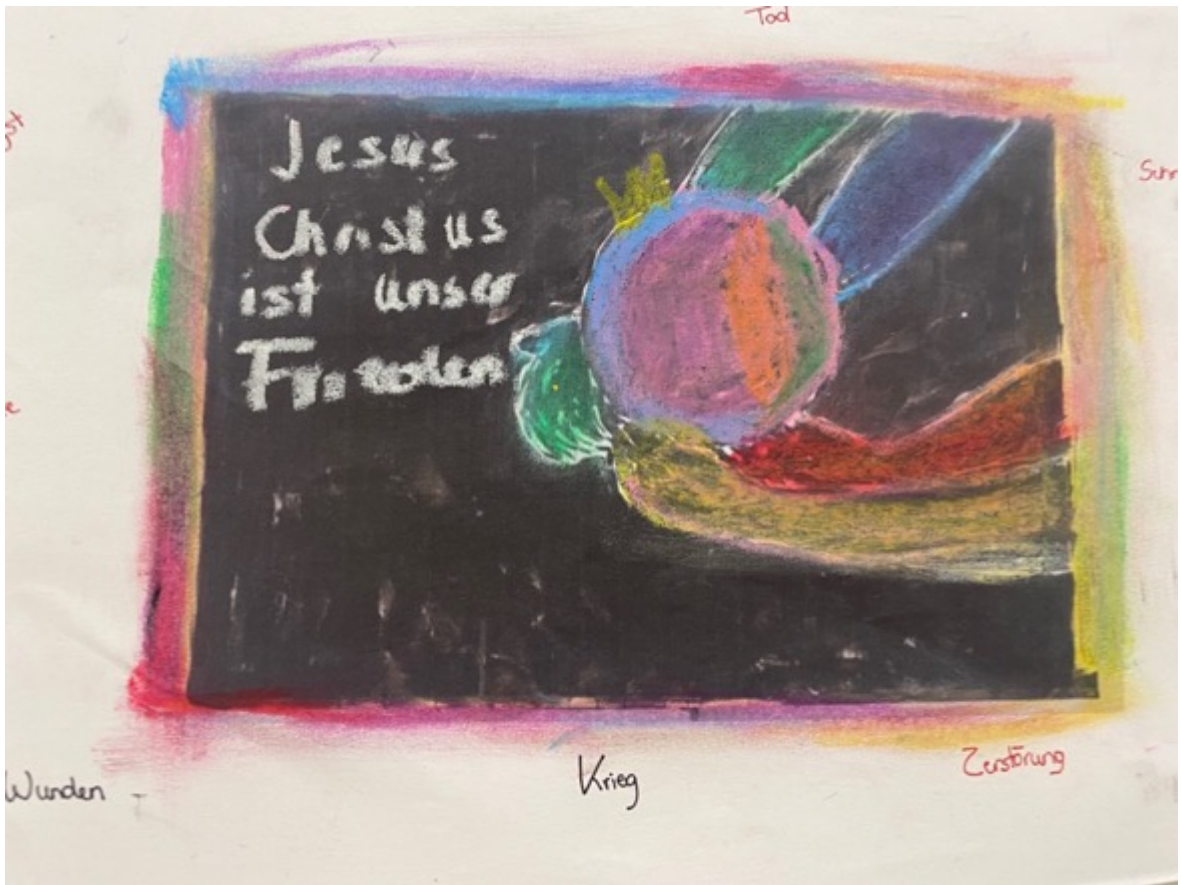 Tod
Jesus
Christus
ist unser
Frieden
Wunden -
Krieg
Zerstörung